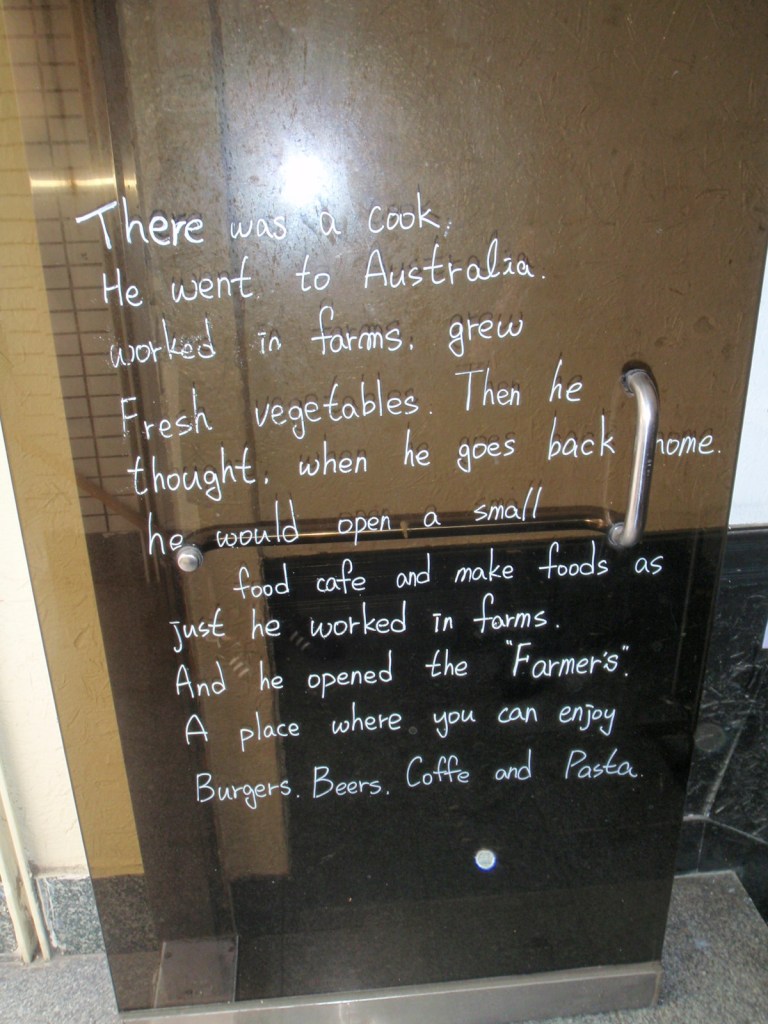 There was a cook.
He went to Australia.
worked in farms. grew
Fresh vegetables. Then he
thought. when he goes back home.
he would open a small
food cafe and make foods as
just he worked in farms.
And he opened the "Farmer's".
A place where you can enjoy
Burgers. Beers. Coffe and Pasta.